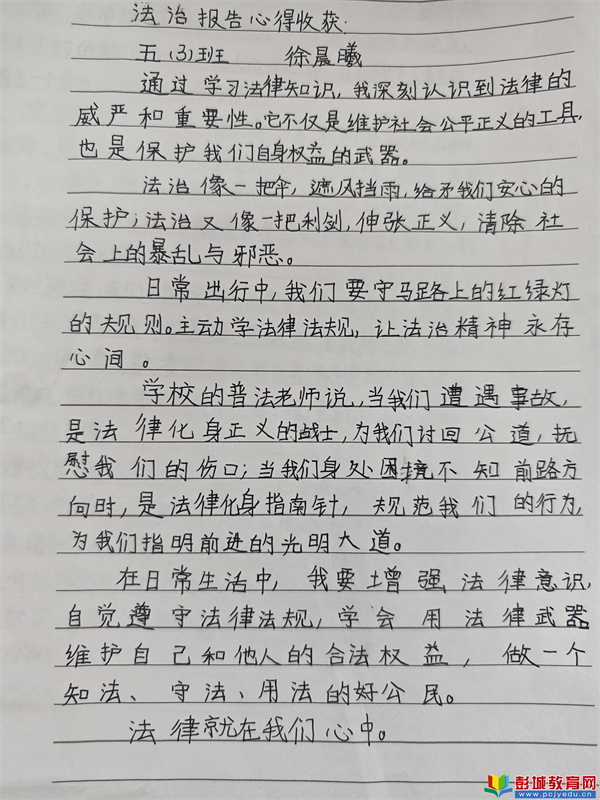 法治报告心得收获:
五(3)班 徐晨曦
通过学习法律知识,我深刻认识到法律的
威严和重要性。它不仅是维护社会公平正义的工具,
也是保护我们自身权益的武器。
法治像一把伞,遮风挡雨,给予我们安心的
保护;法治又像一把利剑,伸张正义,清除社
会上的暴乱与邪恶。
日常出行中,我们要守马路上的红绿灯
的规则。主动学法律法规,让法治精神永存
心间。
学校的普法老师说,当我们遭遇事故,
是法律化身正义的战士,为我们讨回公道,抚
慰我们的伤口;当我们身处困境不知前路方
向时,是法律化身指南针,规范我们的行为,
为我们指明前进的光明大道。
在日常生活中,我要增强法律意识,
自觉遵守法律法规,学会用法律武器
维护自己和他人的合法权益,做一个
知法、守法、用法的好公民。
法律就在我们心中。
彭城教育网
www.pcjyedu.cn